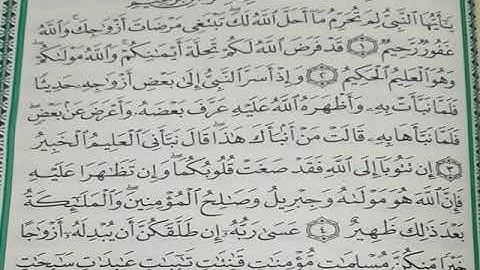 يَٰٓأَيُّهَا ٱلنَّبِيُّ لِمَ تُحَرِّمُ مَآ أَحَلَّ ٱللَّهُ لَكَ ۖ تَبْتَغِي مَرْضَاتَ أَزْوَٰجِكَ ۚ وَٱللَّهُ
غَفُورٌ رَّحِيمٌ ١ قَدْ فَرَضَ ٱللَّهُ لَكُمْ تَحِلَّةَ أَيْمَٰنِكُمْ ۚ وَٱللَّهُ مَوْلَىٰكُمْ ۖ
وَهُوَ ٱلْعَلِيمُ ٱلْحَكِيمُ ٢ وَإِذْ أَسَرَّ ٱلنَّبِيُّ إِلَىٰ بَعْضِ أَزْوَٰجِهِۦ حَدِيثًا
فَلَمَّا نَبَّأَتْ بِهِۦ وَأَظْهَرَهُ ٱللَّهُ عَلَيْهِ عَرَّفَ بَعْضَهُۥ وَأَعْرَضَ عَنۢ بَعْضٍ ۖ
فَلَمَّا نَبَّأَهَا بِهِۦ قَالَتْ مَنْ أَنۢبَأَكَ هَٰذَا ۖ قَالَ نَبَّأَنِيَ ٱلْعَلِيمُ ٱلْخَبِيرُ
٣ إِن تَتُوبَآ إِلَى ٱللَّهِ فَقَدْ صَغَتْ قُلُوبُكُمَا ۖ وَإِن تَظَٰهَرَا عَلَيْهِ
فَإِنَّ ٱللَّهَ هُوَ مَوْلَىٰهُ وَجِبْرِيلُ وَصَٰلِحُ ٱلْمُؤْمِنِينَ ۖ وَٱلْمَلَٰٓئِكَةُ
بَعْدَ ذَٰلِكَ ظَهِيرٌ ٤ عَسَىٰ رَبُّهُۥٓ إِن طَلَّقَكُنَّ أَن يُبْدِلَهُۥٓ أَزْوَٰجًا
خَيْرًا مِّنكُنَّ مُسْلِمَٰتٍ مُّؤْمِنَٰتٍ قَٰنِتَٰتٍ تَٰٓئِبَٰتٍ عَٰبِدَٰتٍ سَٰٓئِحَٰتٍ